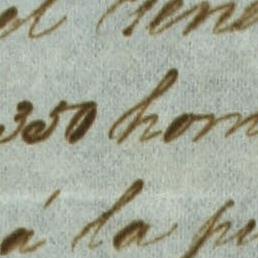 el Gene
350 hom
á la pu